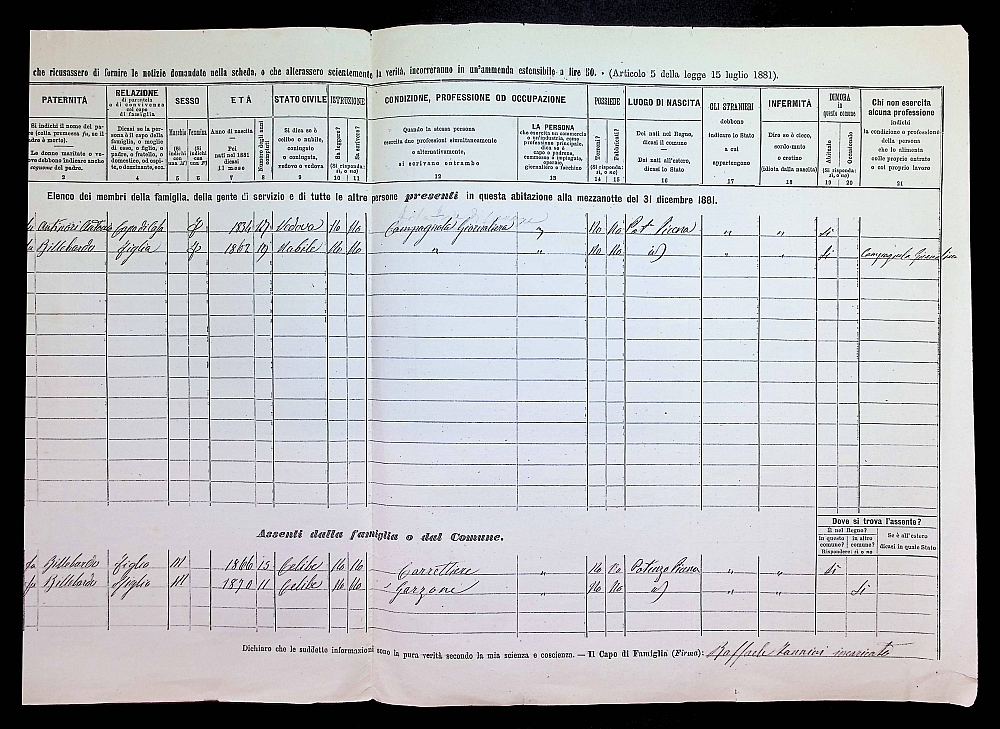 che ricusassero di fornire le notizie domandate nella scheda, o che alterassero scientemente la verità, incorreranno in un'ammenda estensibile a lire 50. - (Articolo 5 della legge 15 luglio 1881).
PATERNITÀ
RELAZIONE di parentela o di convivenza col capo di famiglia
SESSO
ETÀ
STATO CIVILE
ISTRUZIONE
CONDIZIONE, PROFESSIONE OD OCCUPAZIONE
POSSIEDE
LUOGO DI NASCITA
GLI STRANIERI debbono indicare lo Stato a cui appartengono
INFERMITÀ
DIMORA in questo comune
Chi non esercita alcuna professione indichi la condizione o professione della persona che lo alimenta colle proprie entrate o col proprio lavoro
Si indichi il nome del padre
Le donne maritate o vedove debbono indicare anche cognome del padre.
Dicasi se la persona è il capo della famiglia, o moglie di esso, o figlio, o padre, o fratello, o domestico, od ospite, o dozzinante, ecc.
Maschio (Si indichi con una M)
Femmina (Si indichi con una F)
Anno di nascita — Pei nati nel 1881 dicasi il mese
Numero degli anni compiuti
Si dica se è celibe o nubile, coniugato o coniugata, vedovo o vedova
Sa leggere?
Sa scrivere?
(Si risponda: sì, o no)
Quando la stessa persona esercita due professioni simultaneamente o alternativamente, si scrivano entrambe
LA PERSONA che esercita un commercio o un'industria, come professione principale, dica se è capo o padrone, commesso o impiegato, operaio, giornaliero o facchino
Terreni?
Fabbricati?
(Si risponda: sì, o no)
Dei nati nel Regno, dicasi il comune — Dei nati all'estero, dicasi lo Stato
Dire se è cieco, sordo-muto o cretino (idiota dalla nascita)
Abituale
Occasionale
(Si risponda: sì, o no)
2 4 5 6 7 8 9 10 11 12 13 14 15 16 17 18 19 20 21
Elenco dei membri della famiglia, della gente di servizio e di tutte le altre persone presenti in questa abitazione alla mezzanotte del 31 dicembre 1881.
fu Antinori Antonio Capo di Casa f 1834 47 Vedova No No Campagnola Giornaliera " No No Pot Picena " " Si
fu Billebardo figlia f 1862 19 Nubile No No " " No No id " " Si Campagnola Giornaliera
Assenti dalla famiglia o dal Comune.
Dove si trova l'assente?
È nel Regno?
in questo comune?
in altro comune?
Rispondere: sì o no
Se è all'estero dicasi in quale Stato
fu Billebardo figlio M 1866 15 Celibe No No Carrettiere " No No Potenza Picena " " Si
fu Billebardo figlio M 1870 11 Celibe No No Garzone " No No id " " Si
Dichiaro che le suddette informazioni sono la pura verità secondo la mia scienza e coscienza. — Il Capo di Famiglia (Firma): Raffaele Nannini incaricato